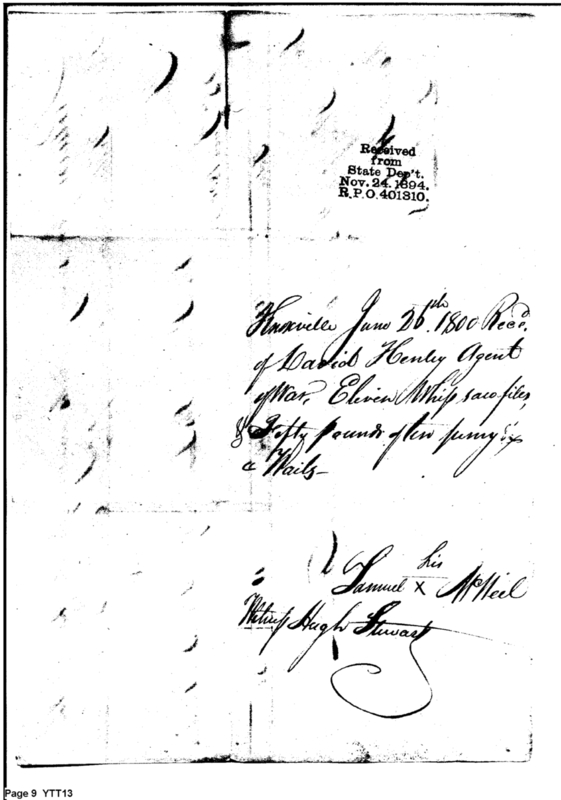 Received
from
State Dep't.
Nov. 24. 1894.
R.P.O. 401310.
Knoxville June 26th. 1800 Recd.
of David Henley Agent
of War, Eleven Whip saw files,
& Fifty pounds of ten penny
Nails
his
Samuel x McNeil
Witness Hugh Stewart
Page 9 YTT13